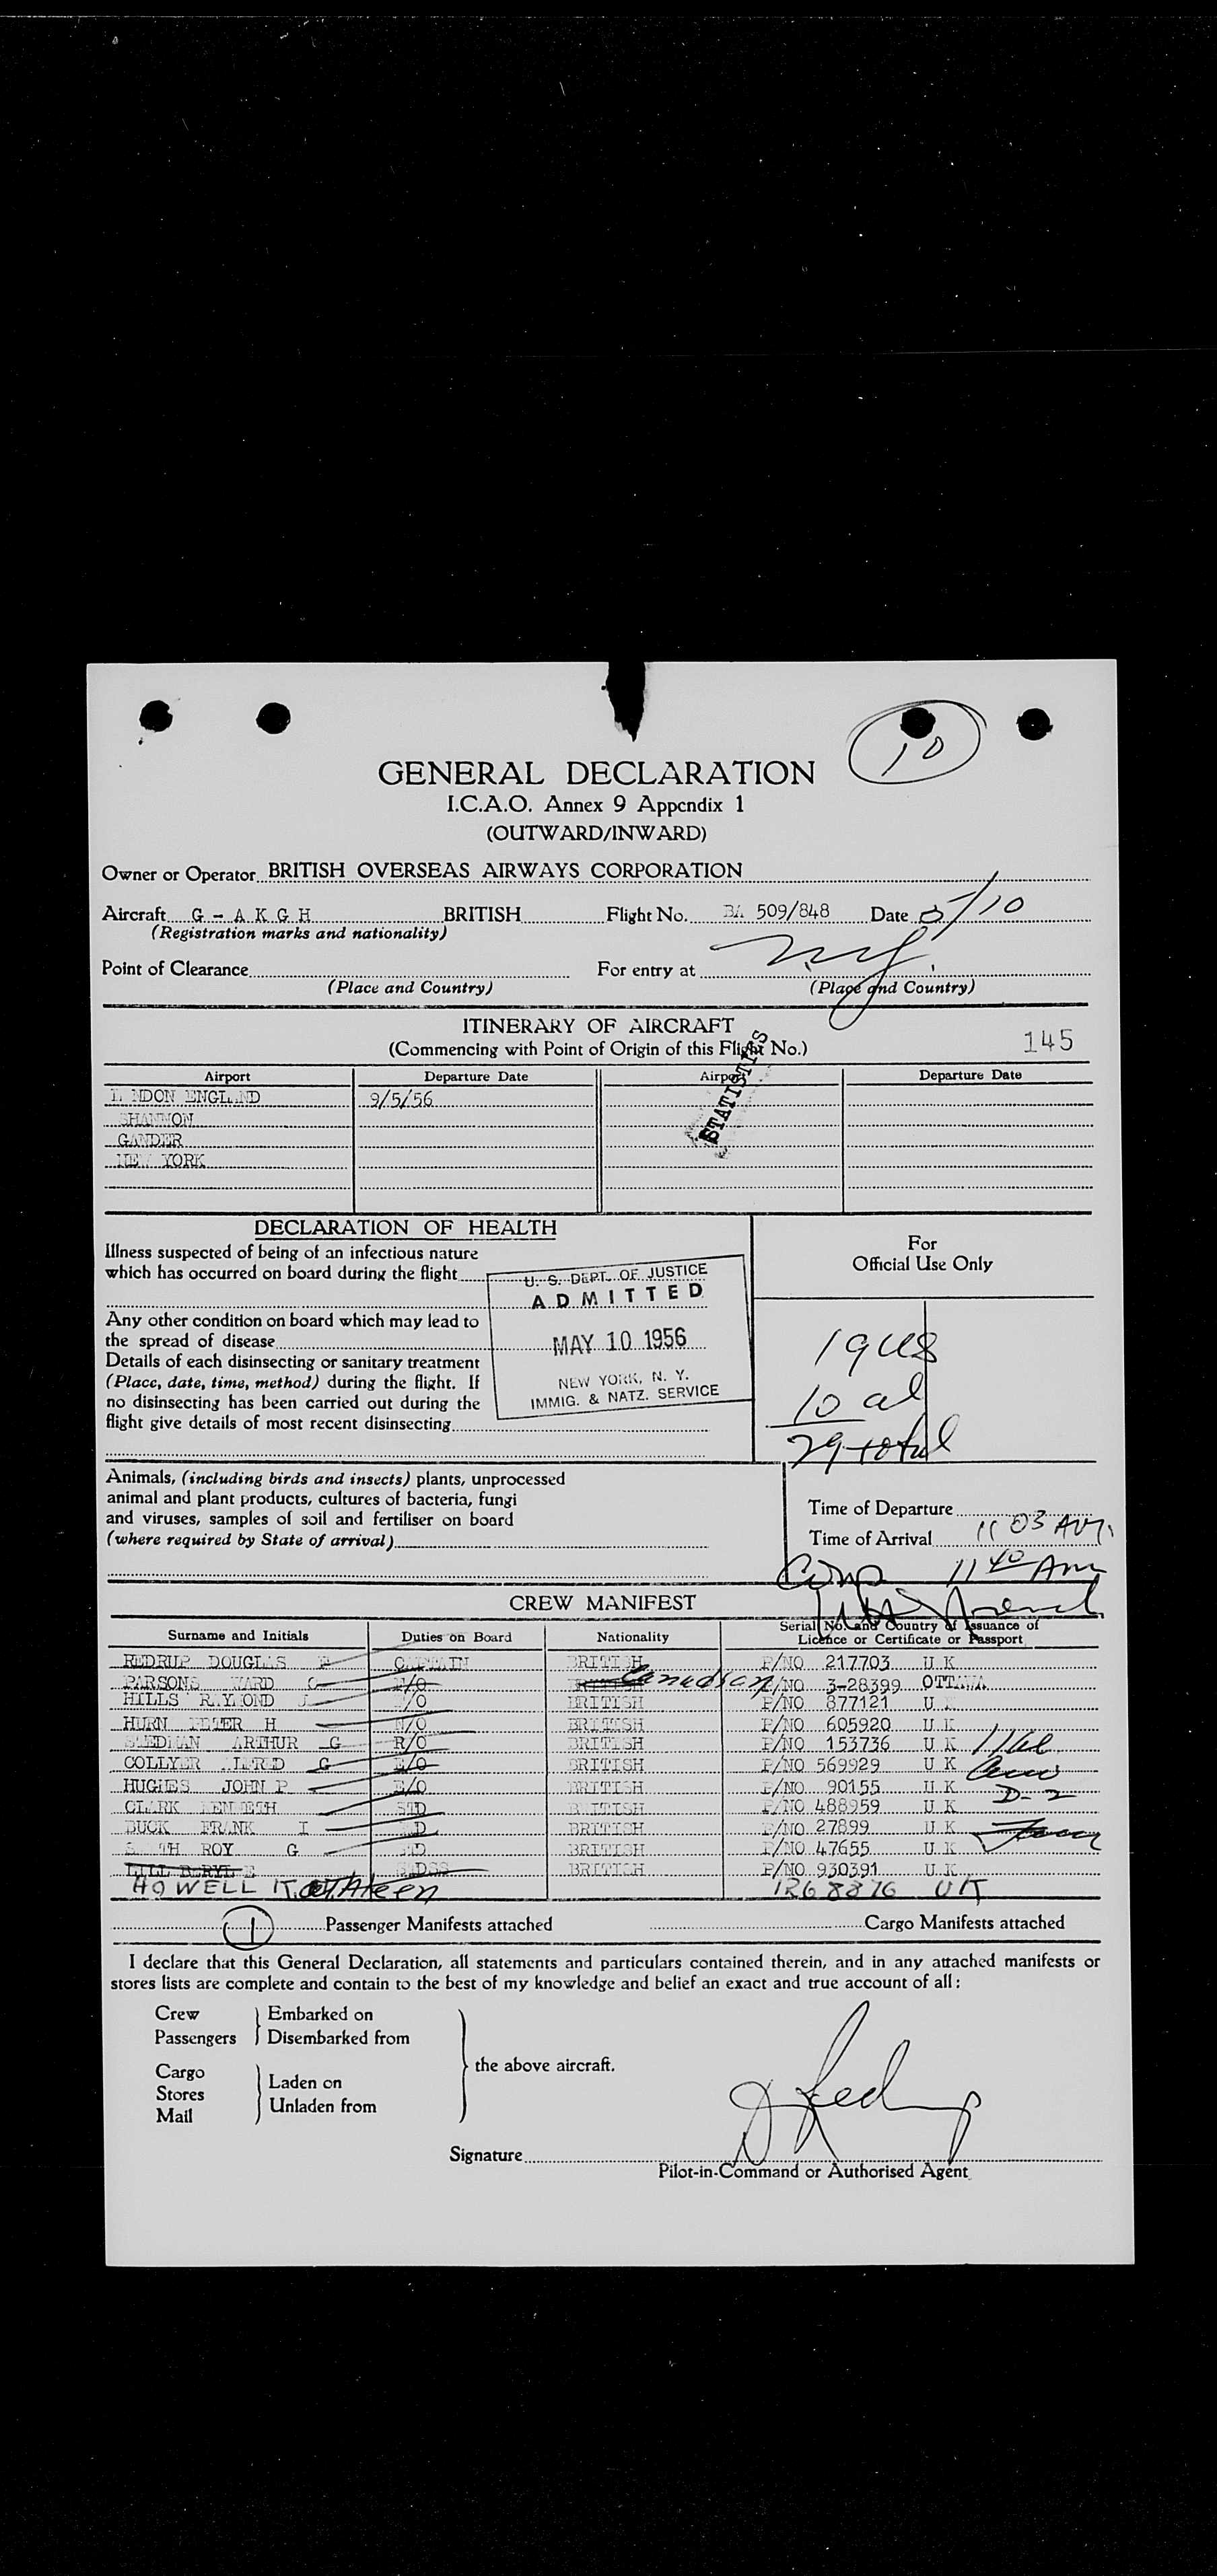 10
GENERAL DECLARATION
I.C.A.O. Annex 9 Appendix 1
(OUTWARD/INWARD)
Owner or Operator BRITISH OVERSEAS AIRWAYS CORPORATION
Aircraft G - A K G H BRITISH Flight No. BA 509/848 Date 5/10
(Registration marks and nationality)
Point of Clearance For entry at N.Y.
(Place and Country) (Place and Country)
ITINERARY OF AIRCRAFT
(Commencing with Point of Origin of this Flight No.) 145
STATISTICS
Airport Departure Date Airport Departure Date
LONDON ENGLAND 9/5/56
SHANNON
GANDER
NEW YORK
DECLARATION OF HEALTH
Illness suspected of being of an infectious nature
which has occurred on board during the flight
Any other condition on board which may lead to
the spread of disease
Details of each disinsecting or sanitary treatment
(Place, date, time, method) during the flight. If
no disinsecting has been carried out during the
flight give details of most recent disinsecting
U. S. DEPT. OF JUSTICE
ADMITTED
MAY 10 1956
NEW YORK, N. Y.
IMMIG. & NATZ. SERVICE
For
Official Use Only
19 US
10 al
29 total
Animals, (including birds and insects) plants, unprocessed
animal and plant products, cultures of bacteria, fungi
and viruses, samples of soil and fertiliser on board
(where required by State of arrival)
Time of Departure
Time of Arrival 11 03 AM
Comp 11 40 AM
CREW MANIFEST
Surname and Initials Duties on Board Nationality Serial No. and Country of Issuance of
Licence or Certificate or Passport
REDRUP DOUGLAS F CAPTAIN BRITISH P/NO 217703 U K
PARSONS WARD C F/O Canadian P/NO 3-28399 OTTAWA
HILLS RAYMOND J /O BRITISH P/NO 877121 U
HURN PETER H N/O BRITISH P/NO 605920 U K
STEDMAN ARTHUR G R/O BRITISH P/NO 153736 U K
COLLYER G E/O BRITISH P/NO 569929 U K
HUGHES JOHN P E/O BRITISH P/NO 90155 U K
CLARK KENNETH STD BRITISH P/NO 488959 U K D-2
DUCK FRANK I BRITISH P/NO 27899 U K
SMITH ROY G BRITISH P/NO 47655 U K
BERYL BRITISH P/NO 930391 U K
HOWELL KATHLEEN 1268876 UK
1 Passenger Manifests attached Cargo Manifests attached
I declare that this General Declaration, all statements and particulars contained therein, and in any attached manifests or
stores lists are complete and contain to the best of my knowledge and belief an exact and true account of all:
Crew Embarked on
Passengers Disembarked from
Cargo
Stores
Mail
Laden on
Unladen from
the above aircraft.
D Redrup
Signature
Pilot-in-Command or Authorised Agent